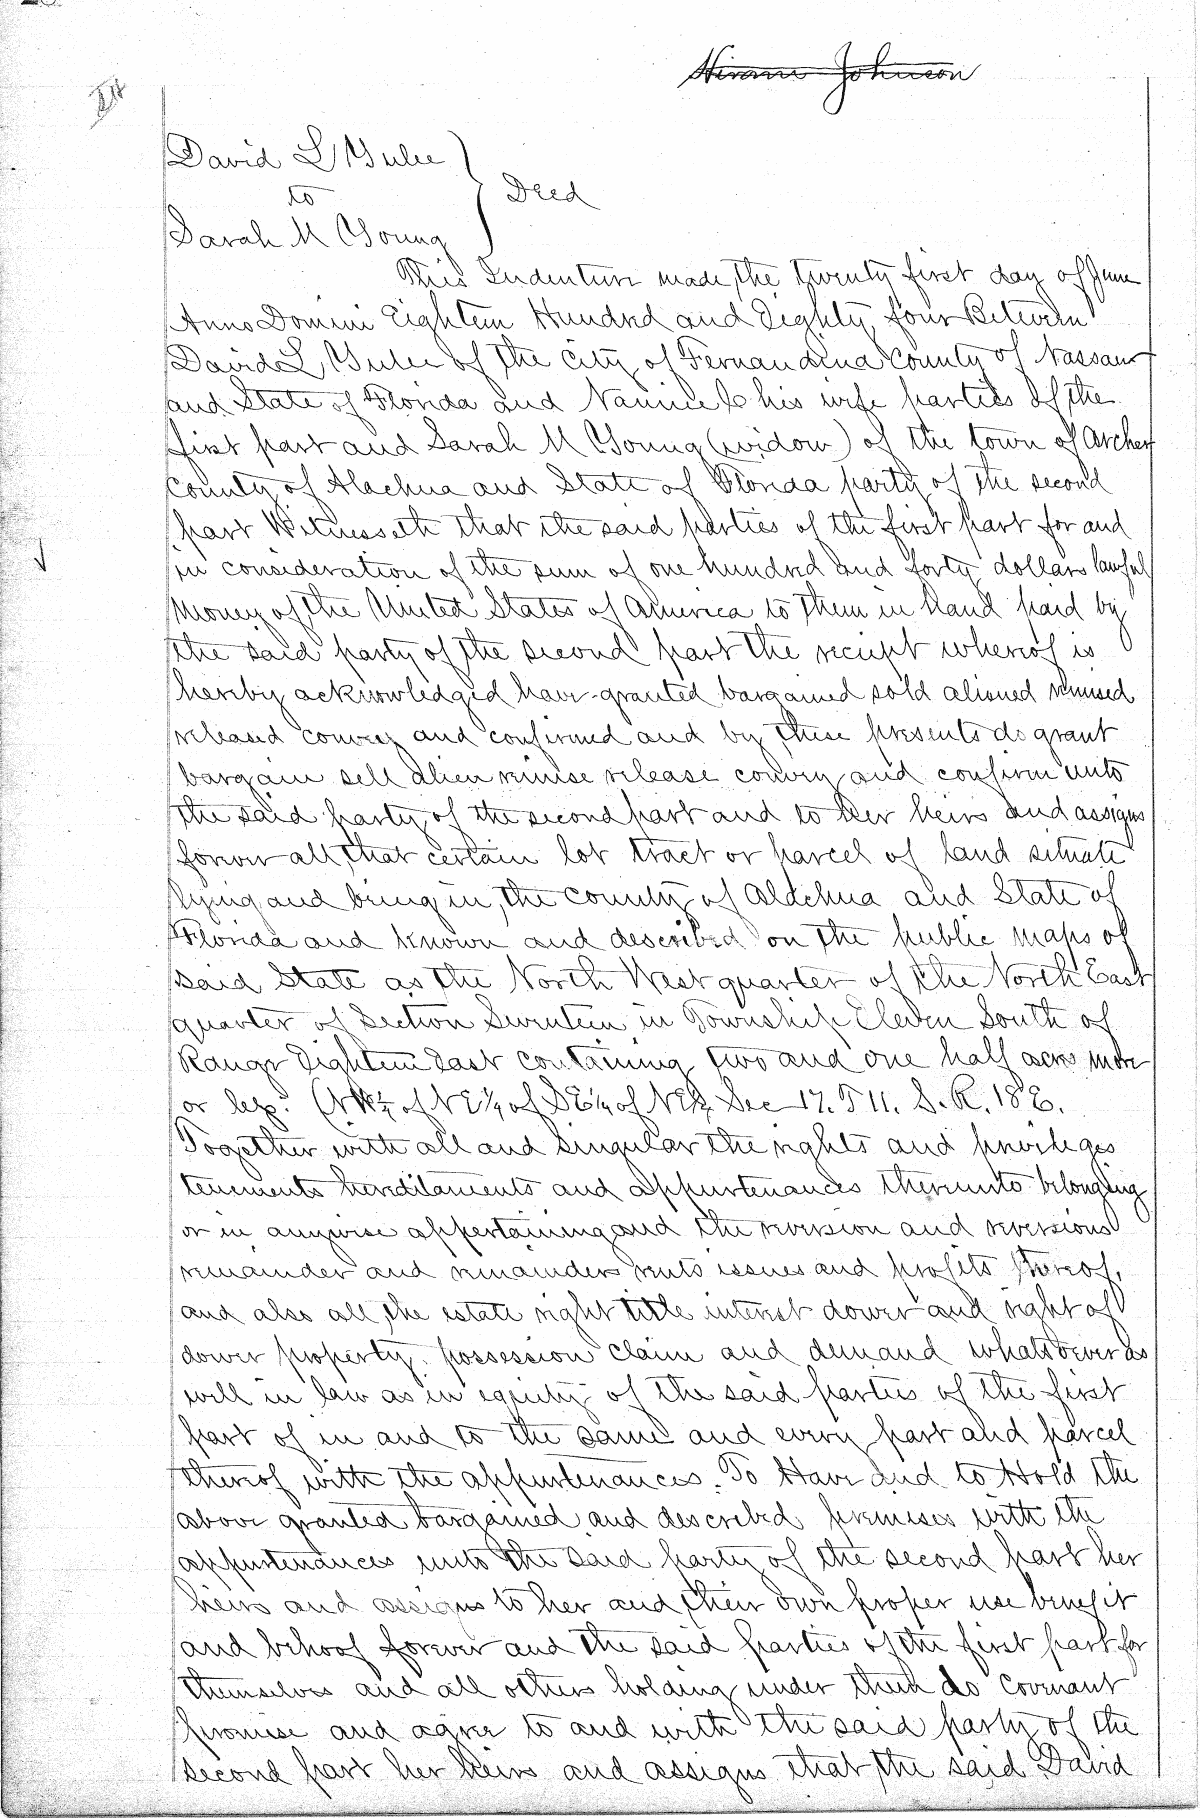 Hiram Johnson
David L Yulee
to
Deed
Sarah M Young
This Indenture made the twenty first day of June
Anno Domini Eighteen Hundred and Eighty four Between
David L Yulee of the city of Fernandina County of Nassau
and State of Florida and Nannie C his wife parties of the
first part and Sarah M Young (widow) of the town of Archer
County of Alachua and State of Florida party of the second
part Witnesseth that the said parties of the first part for and
in consideration of the sum of one hundred and forty dollars lawful
Money of the United States of America to them in hand paid by
the said party of the second part the reciept whereof is
hereby acknowledged have granted bargained sold aliened remised
released convey and confirmed and by these presents do grant
bargain sell alien remise release convey and confirm unto
the said party of the second part and to her heirs and assigns
forever all that certain lot tract or parcel of land situate
lying and being in the county of Alachua and State of
Florida and known and described on the public maps of
said State as the North West quarter of the North East
quarter of Section Seventeen in Township Eleven South of
Range Eighteen East containing two and one half acres more
or less. (N W¼ of N E¼ of S E¼ of N E¼ Sec 17. T 11. S. R. 18 E.
Together with all and singular the rights and privileges
tenements hereditaments and appurtenances thereunto belonging
or in anywise appertaining and the reversion and reversions
remainder and remainders rents issues and profits thereof,
and also all the estate right title interest dower and right of
dower property possession claim and demand whatsoever as
well in law as in equity of the said parties of the first
part of in and to the same and every part and parcel
thereof with the appurtenances. To Have and to Hold the
above granted bargained and described premises with the
appurtenances unto the said party of the second part her
heirs and assigns to her and their own proper use benefit
and behoof forever and the said parties of the first part for
themselves and all others holding under them do covenant
promise and agree to and with the said party of the
second part her heirs and assigns that the said David